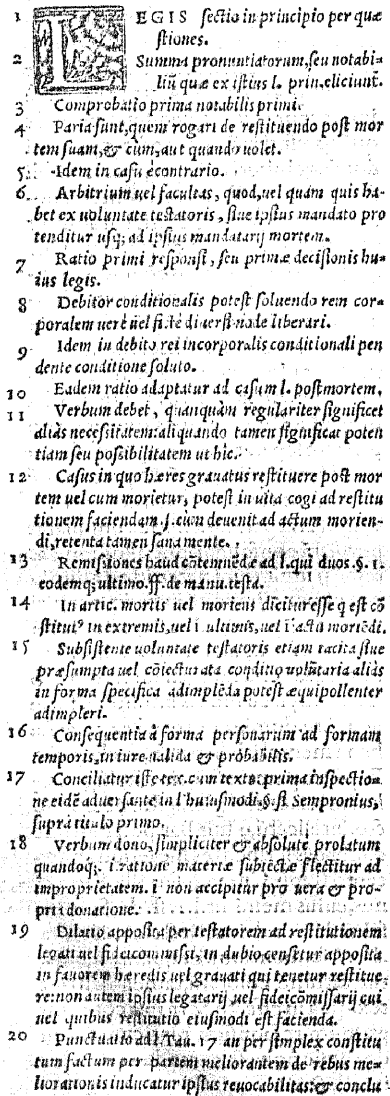 1 LEGIS sectio in principio per quæ
stiones.
2 Summa pronuntiatorum, seu notabi-
liũ quæ ex istius l. prin. eliciunt̃.
3 Comprobatio prima notabilis primi.
4 Paria sunt, quem rogari de restituendo post mor
tem suam, & cùm, aut quando uolet.
5 Idem in casu è contrario.
6 Arbitrium uel facultas, quod, uel quàm quis ha-
bet ex uoluntate testatoris, siue ipsius mandato pro
tenditur usq; ad ipsius mandatarij mortem.
7 Ratio primi responsi, seu primæ decisionis hu-
ius legis.
8 Debitor conditionalis potest soluendo rem cor-
poralem uerè uel fictè diuersimode liberari.
9 Idem in debito rei incorporalis conditionali pen
dente conditione soluto.
10 Eadem ratio adaptatur ad casum l. post mortem.
11 Verbum debet, quanquàm regulariter significet
aliàs necessitatem: aliquando tamen significat poten
tiam seu possibilitatem ut hic.
12 Casus in quo hæres grauatus restituere post mor
tem uel cum morietur, potest in uita cogi ad restitu
tionem faciendam .s. cùm deuenit ad actum morien-
di, retenta tamen sana mente.
13 Remissiones haud cõtemnẽdæ ad l. qui duos. §. 1.
eodemq; ultimo. ff. de manu. testa.
14 In artic. mortis uel moriens dicitur esse q est cõ
stitu⁹ in extremis, uel ĩ ultimis, uel ĩ actu moriẽdi.
15 Subsistente uoluntate testatoris etiam tacita siue
præsumpta uel cõiecturata conditio uolũtaria aliàs
in forma specifica adimplẽda potest æquipollenter
adimpleri.
16 Consequentia à forma personarum ad formam
temporis, in iure ualida & probabilis.
17 Conciliatur iste tex. cum textu prima inspectio-
ne eidẽ aduersante in l. huiusmodi. §. si Sempronius,
suprà titulo primo.
18 Verbum dono, simpliciter & absolute prolatum
quandoq; .i. ratione materiæ subiectæ flectitur ad
improprietatem. i non accipitur pro uera & pro-
pria donatione.
19 Dilatio apposita per testatorem ad restitutionem
legati uel fideicommissi, in dubio censetur apposita
in fauorem hæredis uel grauati qui tenetur restitue
re: non autem ipsius legatarij uel fideicõmissarij cui,
uel quibus restitutio eiusmodi est facienda.
20 Punctuatio ad l. Tau. 17 an per simplex constitu
tum factum per partem meliorantem de rebus me-
liorationis inducatur ipsius reuocabilitas: & conclu